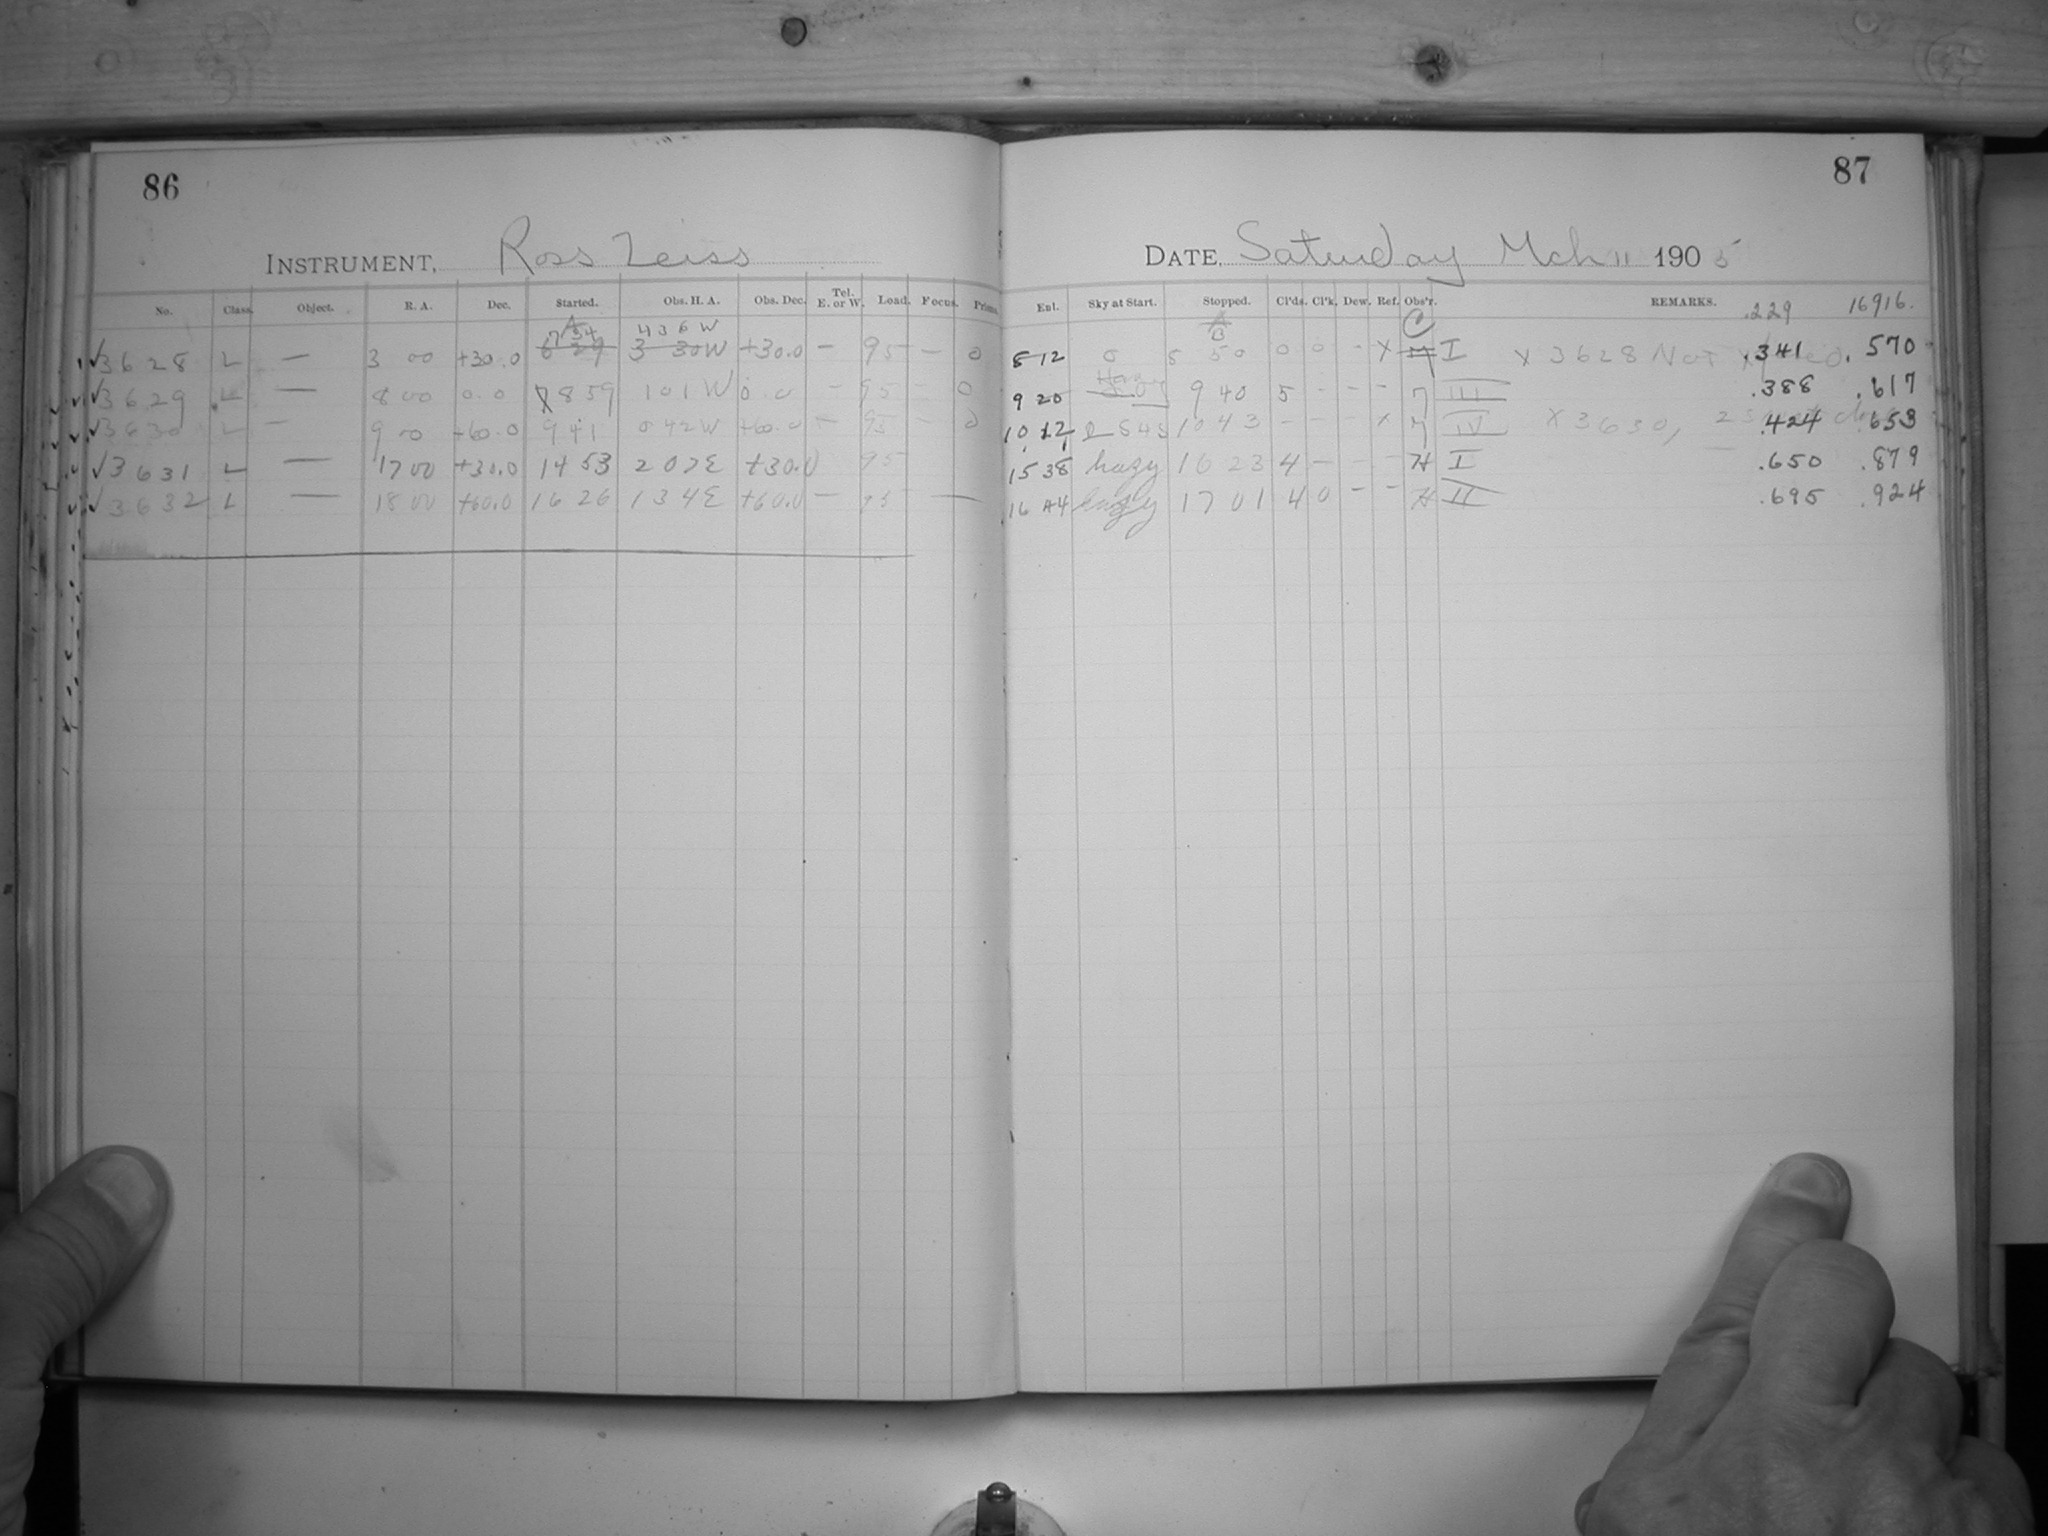 86
INSTRUMENT, Ross Zeiss
No. Class. Object. R. A. Dec. Started. Obs. H. A. Obs. Dec. Tel. E. or W. Load. Focus. Prisms.
A
7 34 4 36 W
√3628 L — 3 00 +30.0 6 29 3 30 W +30.0 — 95 — 0
√3629 L — 8 00 0.0 8 59 1 01 W 0.0 - 95 - 0
√3630 L — 9 00 +60.0 9 41 0 42 W +60.0 — 95 - 0
√3631 L — 17 00 +30.0 14 53 2 07 E +30.0 95
√3632 L — 18 00 +60.0 16 26 1 34 E +60.0 — 95 —
87
DATE, Saturday Mch 11 1905
Ent. Sky at Start. Stopped. Cl'ds. Cl'k. Dew. Ref. Obs'r. REMARKS. .229 16916.
8 12 0 8 50 0 0 - X I X 3628 Not .341 .570
9 20 9 40 5 - - - III .388 .617
10 12 10 43 - - - x IV X 3630, .424 .653
15 38 hazy 16 23 4 - - - H I .650 .879
16 44 hazy 17 01 4 0 - - H II .695 .924